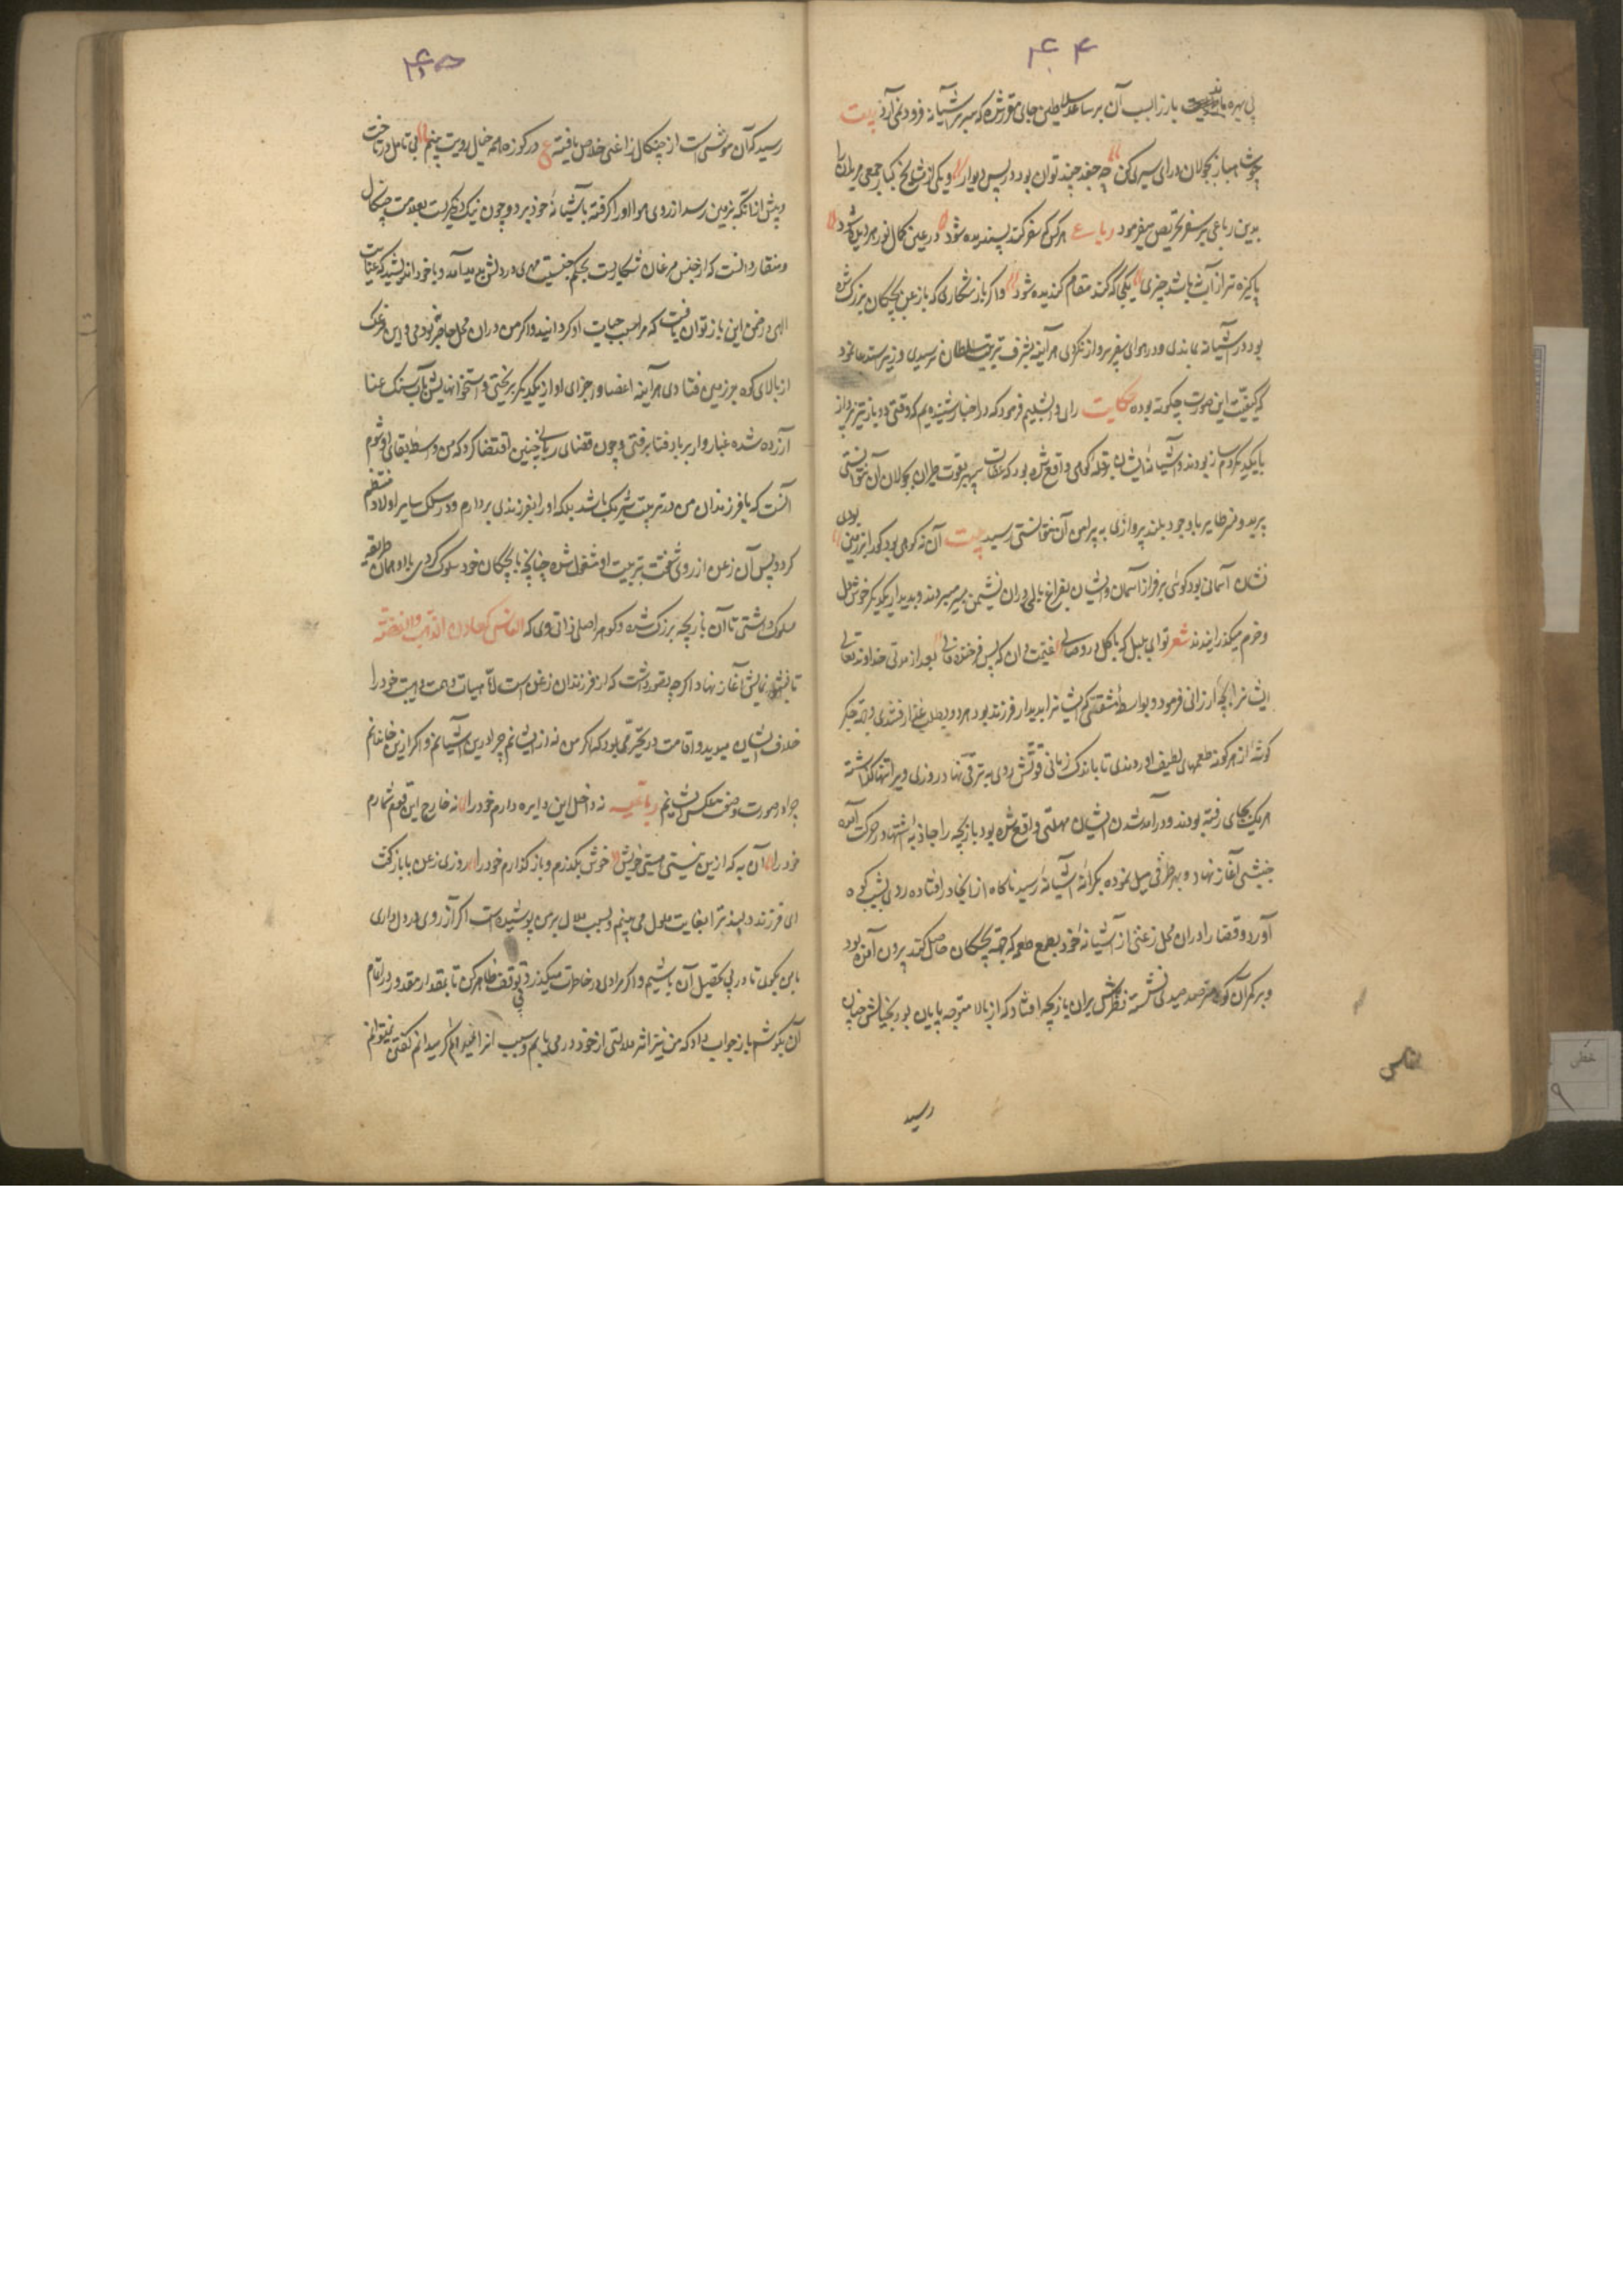 ۴۴
بی بهره یافت باز را سبب آن بر ساعد سلاطین جای مقرر شده که سر بر آشیانه فرود نمی آرد بیت
چو شهباز بجولان درای سیری کن چه جغد چند توان بود در پس دیوار و یکی از مشایخ کبار جمعی مریدان را
بدین رباعی بر سفر تحریص میفرمود رباعی هر کس که سفر کند پسندیده شود در عین کمال نور هر دیده شود
پاکیزه تر از آب نباشد چیزی یکجا که کند مقام گندیده شود و اگر باز شکاری که با زغن بچگان بزرگ شده
بود در آشیانه بماندی و در هوای سفر پرواز نکردی هرآینه بشرف تربیت سلطان نرسیدی وزیر استدعا نمود
که کیفیت این صورت چگونه بوده حکایت رای دابشلیم فرمود که در اخبار شنیده ایم که وقتی دو باز تیز پرواز
با یکدیگر دمساز بودند و آشیانه ایشان بر قله کوهی واقع شده بود که عقاب سپهر بقوت طیران بجولان آن نتوانستی
پرید و نسر طایر با وجود بلند پروازی به پیرامن آن نتوانستی رسید بیت آن نه کوهی بود کو را بر زمین بودی
نشان آسمانی بود گوئی بر فراز آسمان و ایشان بفراغ بالی در آن نشیمن بسر میبردند و بدیدار یکدیگر خوشدل
و خرم میگذرانیدند شعر تو ای بلبل که با گل در وصالی غنیمت دان که بس فرخنده فالی بعد از مدتی خداوند تعالی
ایشانرا بچه ارزانی فرمود و بواسطه شفقتی که ایشانرا بدیدار فرزند بود هر دو بطلب غذا رفتندی و جهت جگر
گوشه از هر گونه طعمهای لطیف آوردندی تا باندک زمانی قوتش روی به ترقی نهاد روزی ویرا تنها گذاشته
هر یک بجای رفته بودند و در آمد شدن ایشان مهلتی واقع شده بود باز بچه را جاذبه اشتها در حرکت آمده
جنبشی آغاز نهاد و بهر طرفی میل نموده بکرانه آشیانه رسید ناگاه از آنجا در افتاده روی بشیب کوه
آورد و قضا را در آن محل زغنی از آشیانه خود بطمع طعمه که جهت بچگان حاصل کند بیرون آمده بود
و بر کمر آن کوه مترصد صیدی نشسته نظرش بران باز بچه افتاد که از بالا متوجه پایان بود بخیالش چنان
رسید
۴۵
رسید که آن موشیست از چنگال زاغنی خلاص یافته ع در کوزه همه خیال رویت بینم بی تامل در تاخت
و پیش از آنکه بزمین رسد از روی هوا او را گرفته بآشیانه خود برد و چون نیک در نگریست بعلامت چنگال
و منقار دانست که از جنس مرغان شکاریست بحکم جنسیت مهری در دلش پدید آمد و با خود اندیشید که عنایت
الهی در ضمن این باز توان یافت که مرا سبب حیات او گردانید و اگر من در آن محل حاضر نبودمی و این مرغک
از بالای کوه بر زمین فتادی هرآینه اعضا و اجزای او از یکدیگر بریختی و استخوانهایش بآسیا سنگ عنا
آزرده شده غباروار بر باد فنا برفتی و چون قضای ربانی چنین اقتضا کرد که من واسطه بقای او شوم
آنست که با فرزندان من در تربیت شریک باشد بلکه او را بفرزندی بردارم و در سلک سایر اولاد منتظم
گردد پس آن زغن از روی شفقت بتربیت او مشغول شده چنانچه با بچگان خود سلوک کردی با او همان طریقه
سلوک داشتی تا آن باز بچه بزرگ شد و گوهر اصلی ذاتی وی که الناس کمعادن الذهب والفضة
تابش و نمایش آغاز نهاد اگر چه تصور داشت که از فرزندان زغن است اما هیات و همت و هیبت خود را
خلاف ایشان میدید و اقامت در تحیر می بود که اگر من نه از ایشانم چرا در این آشیانم و اگر ازین خاندانم
چرا در صورت و صفت بعکس ایشانم رباعیه نه داخل این دایره دارم خود را نه خارج این قوم شمارم
خود را آن به که ازین نیستی هستی خویش خوش بگذرم و باز گذارم خود را روزی زغن با باز گفت
ای فرزند دلبند ترا بغایت ملول می بینم و سبب ملال بر من پوشیده است اگر آرزوی در دل داری
با من بگوی تا در پی تحصیل آن باشیم و اگر مرادی در خاطرت میگذرد بی توقف ظاهر کن تا بمقدار مقدور در اتمام
آن بکوشم باز جواب داد که من نیز اثر ملالتی از خود در می یابم و سبب آنرا نمیدانم و اگر میدانم گفتن نمیتوانم